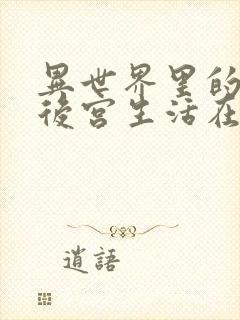 異世界里的
後宮生活在
逍語